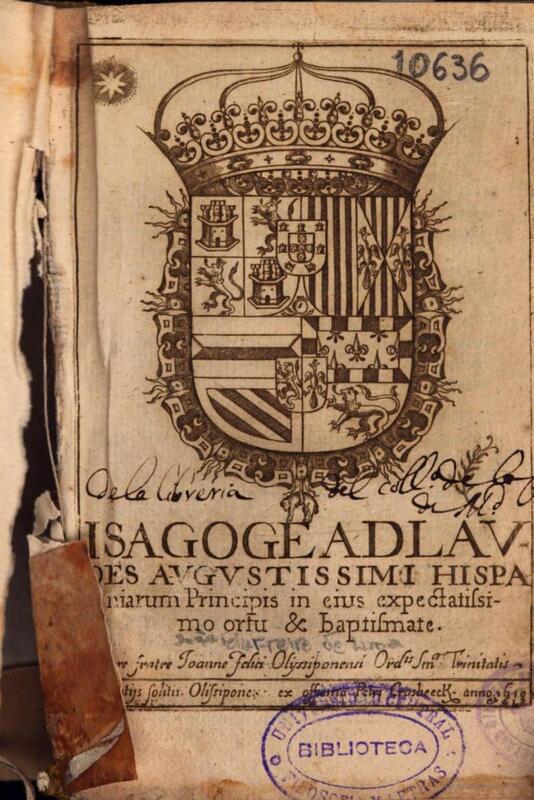 10636
de la libreria del coll.o de la
de Md
ISAGOGE AD LAV-
DES AVGVSTISSIMI HISPA
niarum Principis in eius expectatissi-
mo ortu & baptismate.
fratre Joanne Felici Olyssiponensi Ord.is Sm.ae Trinitatis
solitis Olissipone, ex officina Petri Crasbeeck. anno.
BIBLIOTECA
FILOSOFIA Y LETRAS